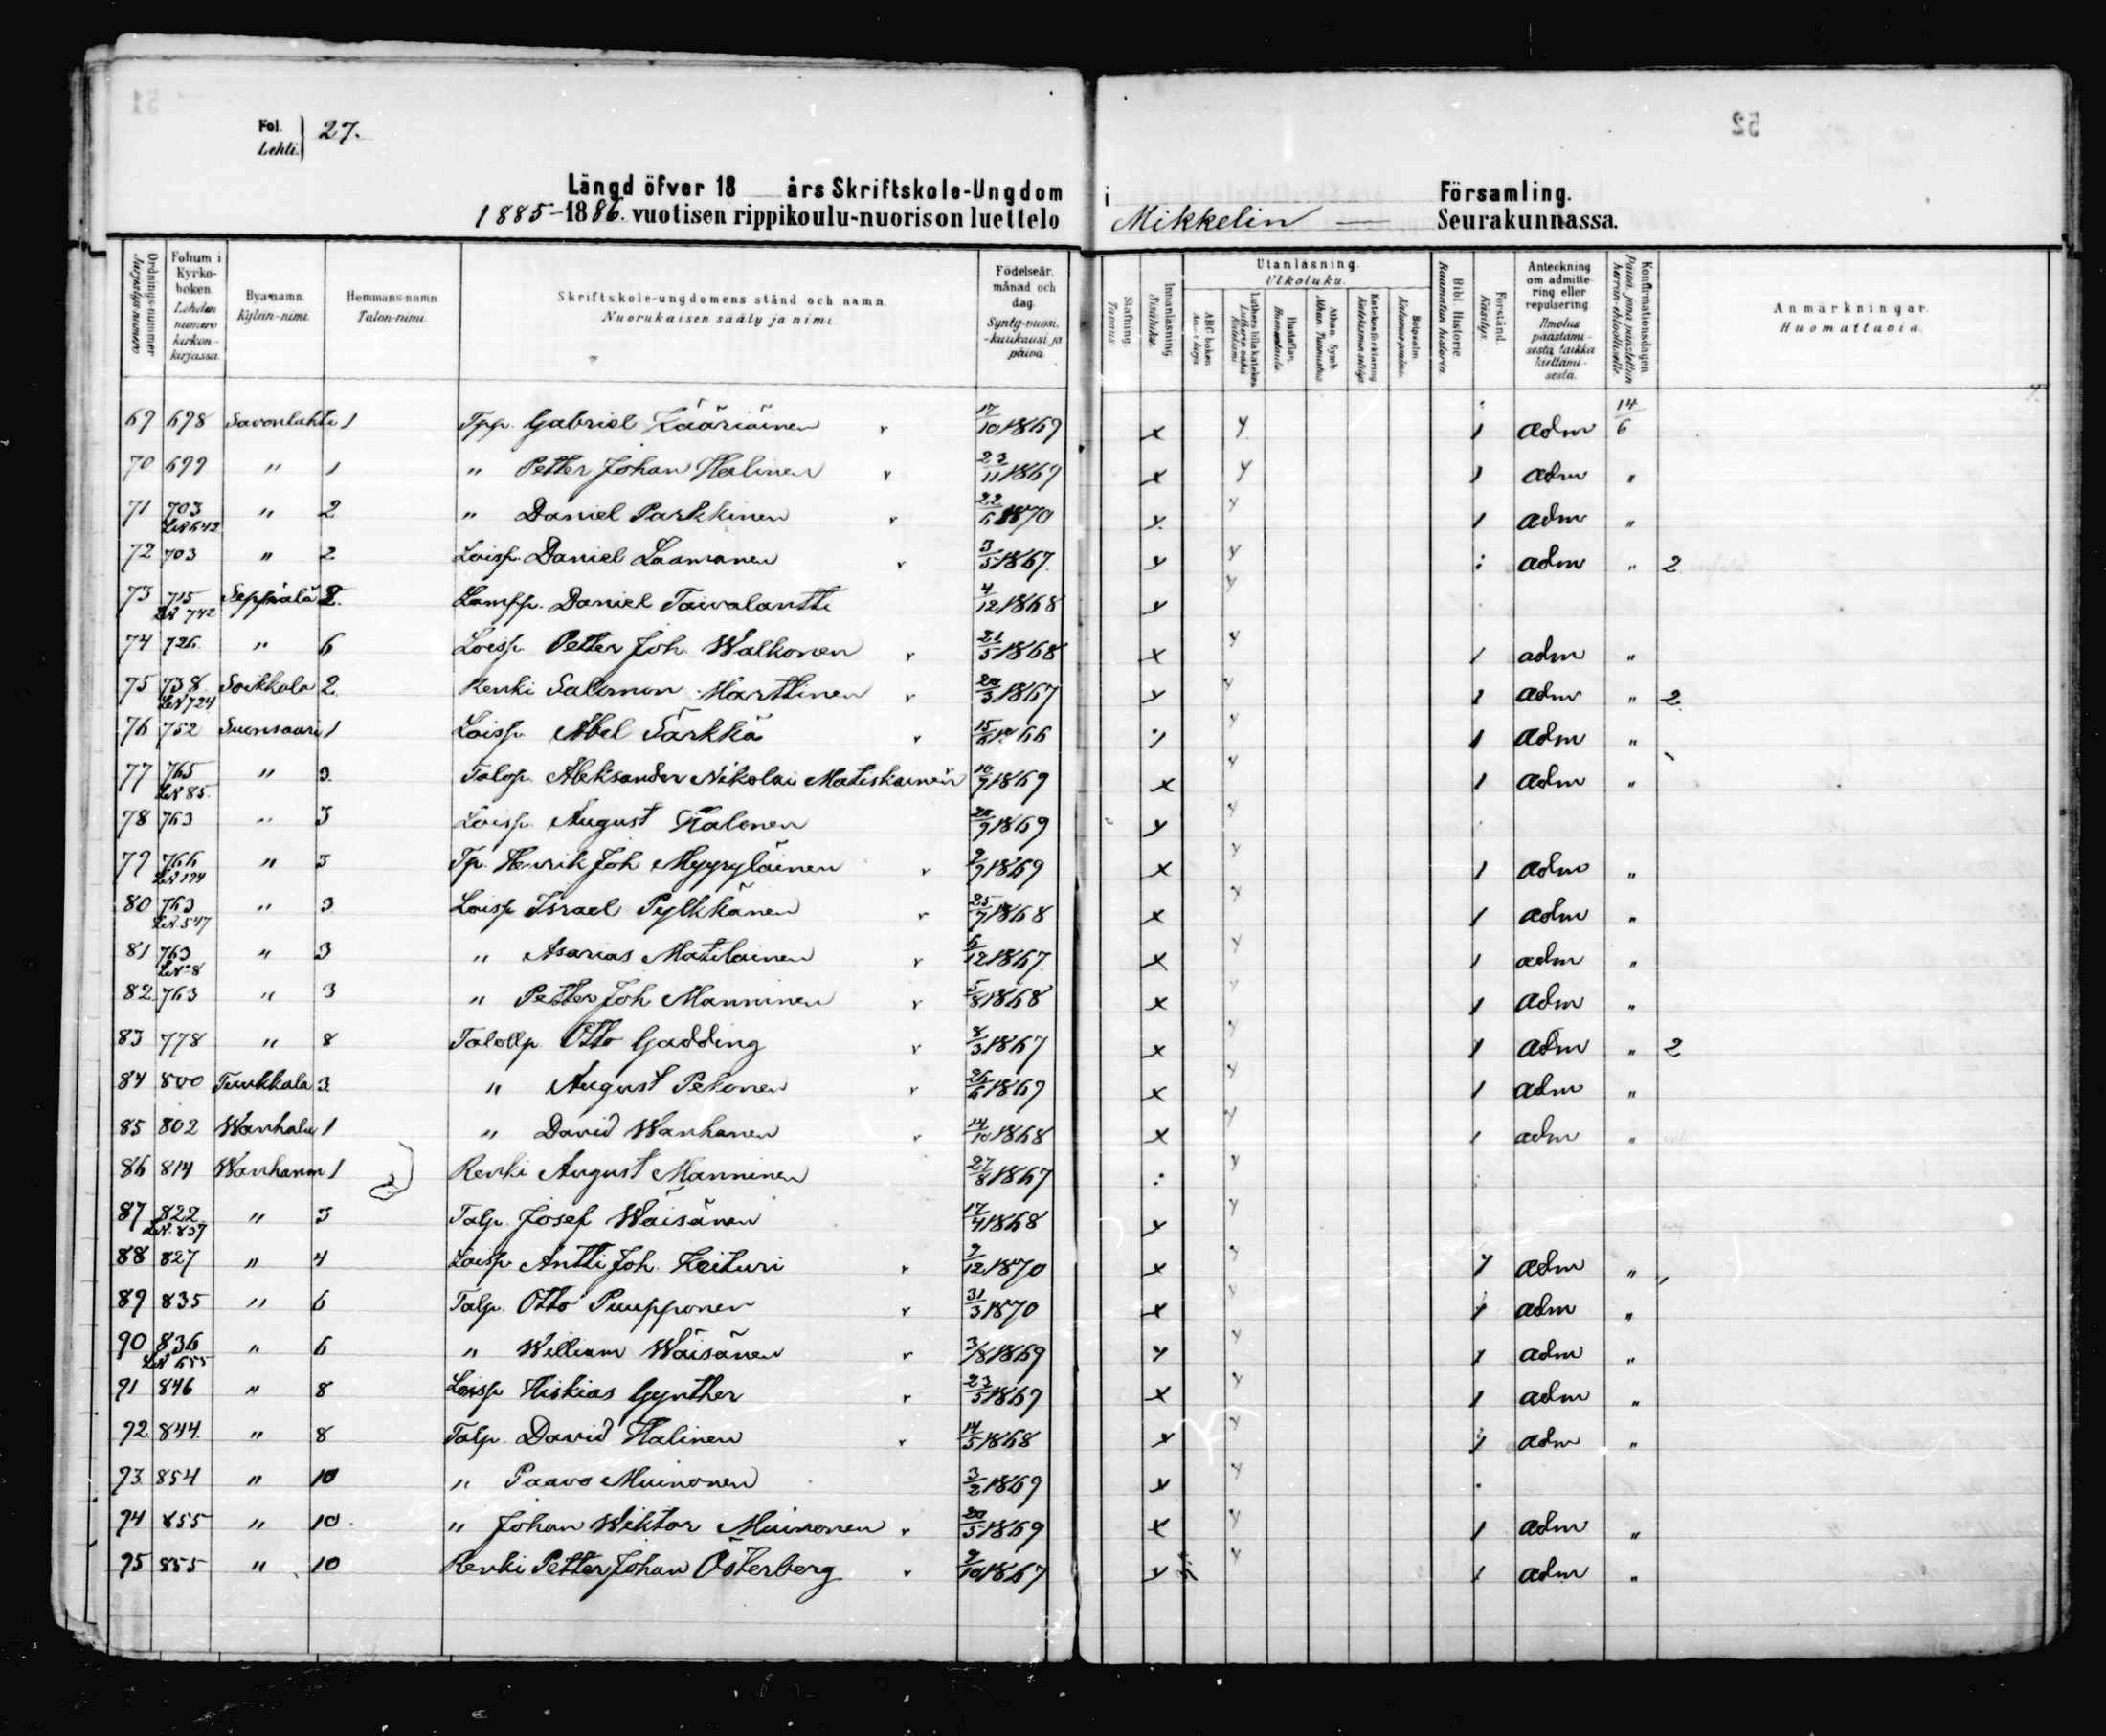 Fol. Lehti. 27.
Längd öfver 18 års Skriftskole-Ungdom i Församling.
1885-1886. vuotisen rippikoulu-nuorison luettelo Mikkelin Seurakunnassa.
Ordnings-nummer Järjestys-numero
Folium i Kyrko-boken. Lehden numero kirkon-kirjassa.
Bya-namn. Kylän-nimi.
Hemmans-namn. Talon-nimi.
Skriftskole-ungdomens stånd och namn. Nuorukaisen sääty ja nimi.
Födelseår, månad och dag. Synty-vuosi, -kuukausi ja päivä.
Stafning. Tavaus.
Innanläsning Sisäluku.
Utanläsning. Ulkoluku.
ABC boken Aa-n kirja
Luthers lilla katekes Lutherin vähä Katekismi
Hustaflan. Huoneentaulu.
Athan. Symb Athan. Tunnustus
Katekesförklaring Katekismin selitys
Botpsalm. Katumus psalmi.
Bibl. Historie Raamatun historia.
Förstånd. Käsitys.
Anteckning om admitte-ring eller repulsering. Ilmoitus päästämi-sestä taikka kieltämi-sestä.
Konfirmationsdagen.
Anmärkningar. Huomattavia.
69 698 Savonlahti 1 Tpp. Gabriel Kääriäinen v 17/10 1869 x y 1 adm 14/6
70 699 " 1 " Petter Johan Halinen v 23/11 1869 x y 1 adm "
71 703 642 " 2 " Daniel Parkkinen v 22/6 1870 y y 1 adm "
72 703 " 2 Loisp. Daniel Laamanen v 3/5 1867 y y : adm " 2
73 715 742 Seppälä 2. Lampp. Daniel Taivalantti 4/12 1868 y y
74 726 " 6 Loisp. Petter Joh. Walkonen v 21/5 1868 x y 1 adm "
75 738 724 Soikkala 2. Renki Salomon Marttinen v 20/3 1867 y y 1 adm " 2
76 752 Suonsaari 1 Loisp. Abel Särkkä v 15/6 1866 y 1 adm "
77 765 85. " 3. Talop. Aleksander Nikolai Matiskainen 10/9 1869 x y 1 adm "
78 763 " 3 Loisp. August Halonen 20/9 1869 y y
79 766 194 " 3 Tp. Henrik Joh Myyryläinen v 9/9 1869 x y 1 adm "
80 763 547 " 3 Loisp Israel Pylkkänen v 25/7 1868 x y 1 adm "
81 763 8 " 3 " Asarias Matilainen v 6/12 1867 x y 1 adm "
82 763 " 3 " Petter Joh Manninen v 5/8 1868 x y 1 adm "
83 778 " 8 Talollp. Otto Gadding v 8/3 1867 x y 1 adm " 2
84 800 Tuukkala 3 " August Pekonen v 26/6 1869 x y 1 adm "
85 802 Wanhala 1 " David Wanhanen v 14/10 1868 x y 1 adm "
86 814 Wanhanm 1 Renki August Manninen 27/8 1867 : y
87 822 837 " 3 Talp. Josef Wäisänen 17/4 1868 y y
88 827 " 4 Loisp Antti Joh. Keituri v 9/12 1870 x y 1 adm "
89 835 " 6 Talp. Otto Puupponen v 31/3 1870 x y 1 adm "
90 836 655 " 6 " William Wäisänen v 3/8 1869 y y 1 adm "
91 846 " 8 Loisp Hiskias Gynther v 23/5 1869 x y 1 adm "
92 844 " 8 Talp. David Halinen v 14/5 1868 x y 1 adm "
93 854 " 10 " Paavo Muinonen 3/2 1869 x y
94 855 " 10. " Johan Wiktor Muinonen v 20/5 1869 x y 1 adm "
95 855 " 10 Renki Petter Johan Österberg v 9/10 1867 y y 1 adm "